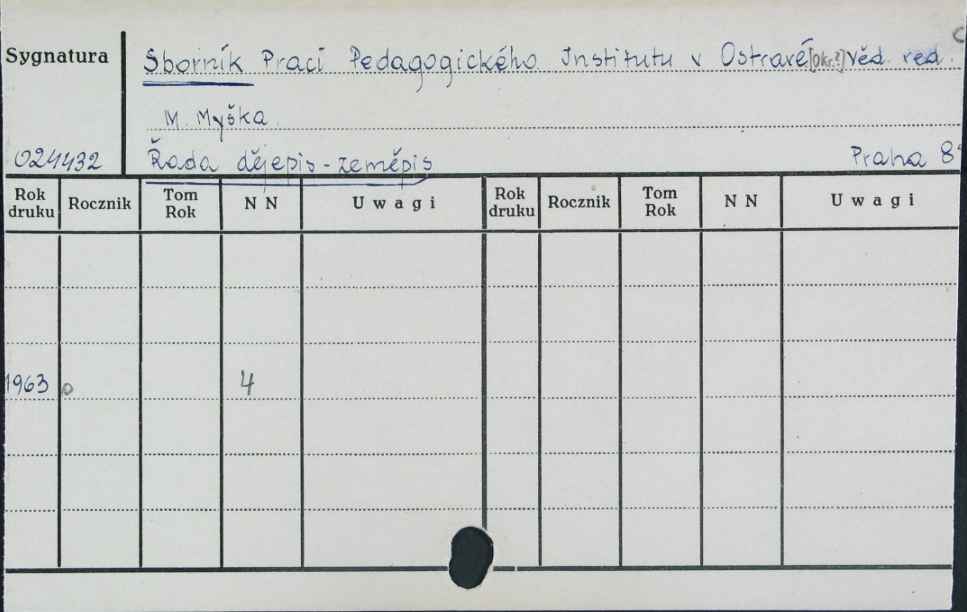 C
Sygnatura Sborník Prací Pedagogického Institutu v Ostravě [Okr.?] věd. red.
M. Myška.
024432 Řada dějepis-zeměpis Praha 8°
Rok druku Rocznik Tom Rok N N Uwagi Rok druku Rocznik Tom Rok N N Uwagi
1963 0 4